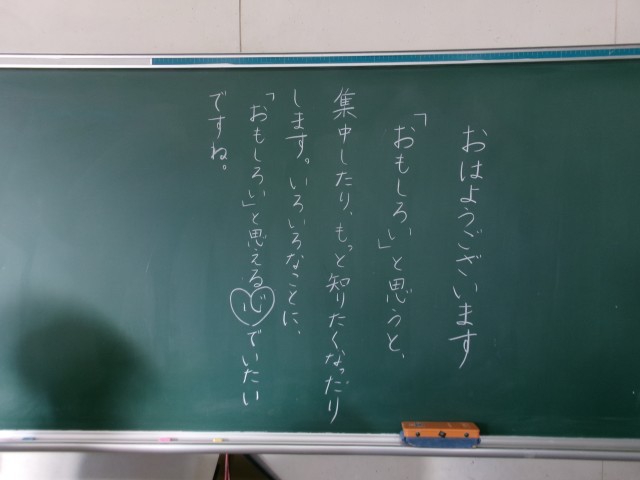 おはようございます
「おもしろい」と思うと、
集中したり、もっと知りたくなったり
します。いろいろなことに、
「おもしろい」と思える心でいたい
ですね。